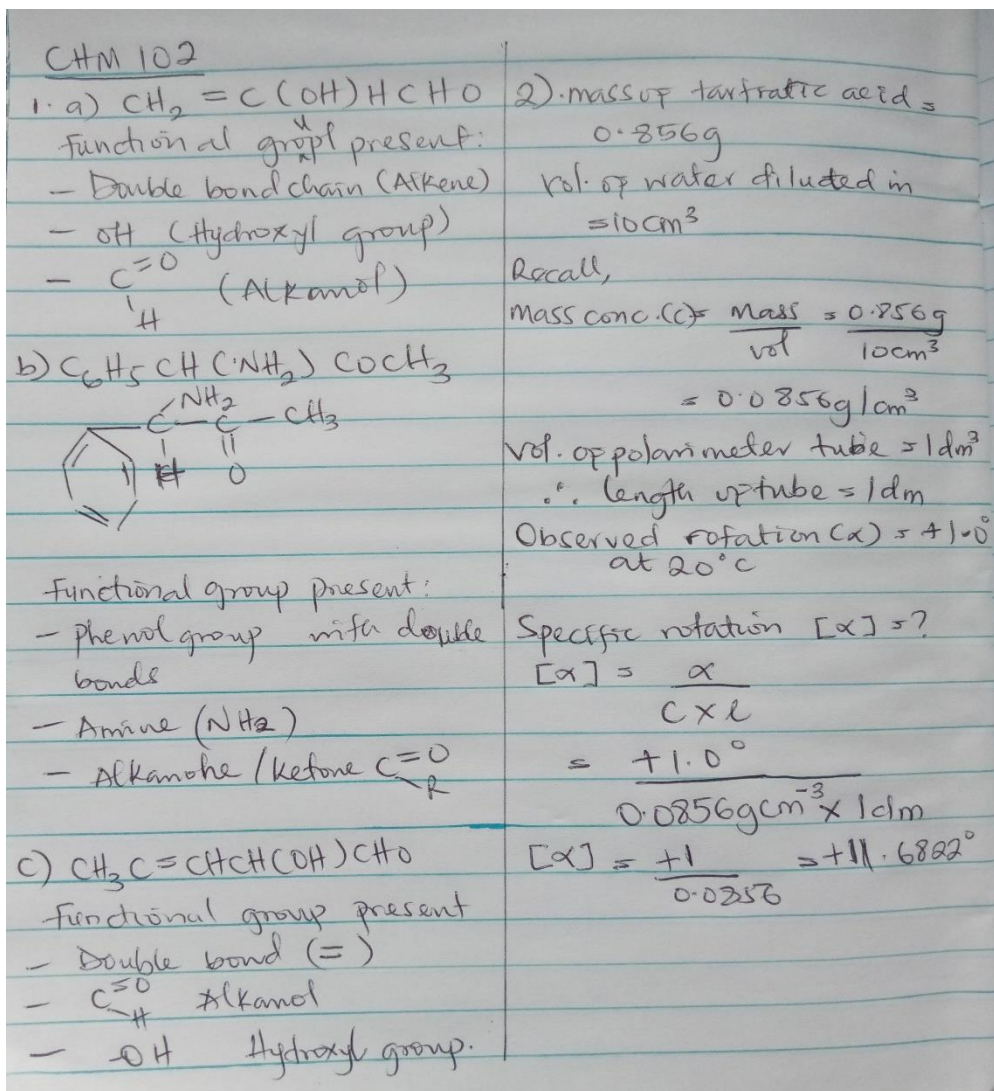 CHM 102
1. a) CH2 = C(OH)HCHO
Functional present:
- Double bond chain (Alkene)
- OH (Hydroxyl group)
- C=O
H (Alkanol)
b) C6H5 CH (NH2) COCH3
NH2
C - C - CH3
H O
Functional group present:
- phenol group with double
bonds
- Amine (NH2)
- Alkanone / Ketone C=O
R
c) CH3C=CHCH(OH)CHO
Functional group present
- Double bond (=)
- C=O Alkanol
H
- -OH Hydroxyl group.
2). mass of acid =
0.856g
vol. of water diluted in
=10cm³
Recall,
Mass conc. (c)= Mass = 0.856g
vol 10cm³
= 0.0856g/cm³
Vol. of polarimeter tube = 1dm³
∴ length of tube = 1dm
Observed rotation (α) = +1.0°
at 20°C
Specific rotation [α] =?
[α] = α
C x l
= +1.0°
0.0856gcm⁻³ x 1dm
[α] = +1 = +11.6822°
0.0856